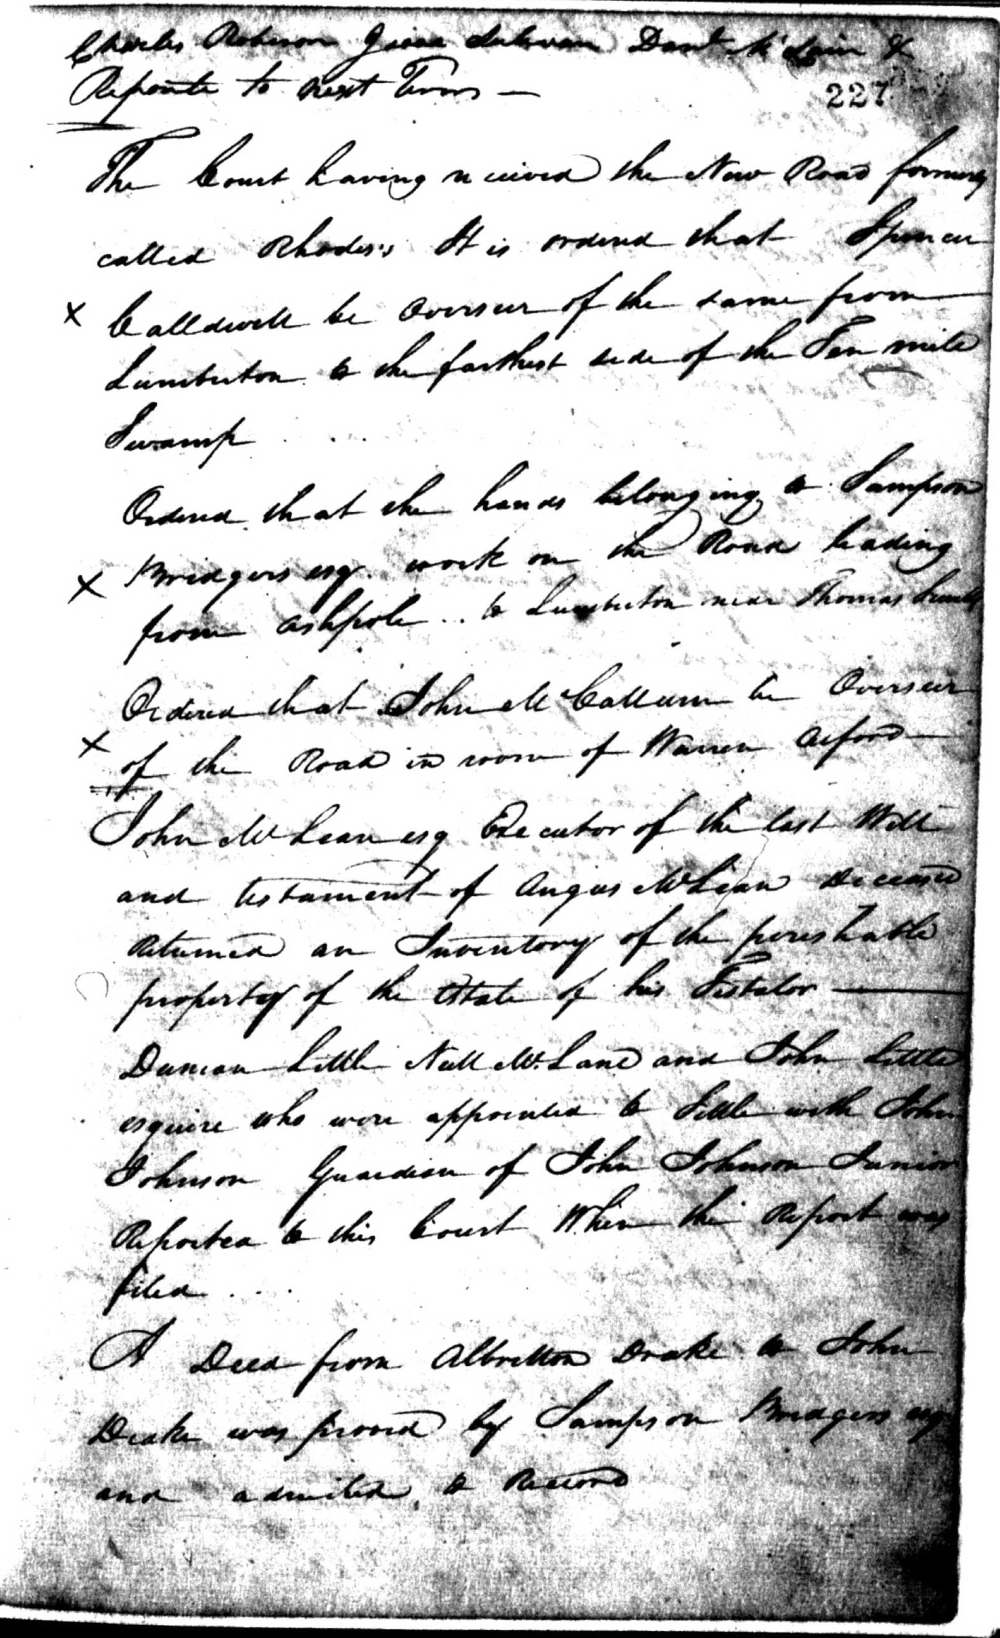 Charles Roberson Danl McLain &
Reporte to next Term —
227
The Court having received the New Road formerly
called Rhodes's It is ordered that Spencer
x Calldwell be Overseer of the same from
Lumberton to the farthest side of the Ten mile
Swamp . . .
Ordered that the hands belonging to Sampson
x Bridgers esqr. work on the Road leading
from Ashpole .. to Lumberton near Thomas
Ordered that John McCallum be Overseer
x of the Road in room of Warren Alford —
John McLean esq Executor of the last Will
and testament of Angus McLean Deceased
Returned an Inventory of the perishable
property of the Estate of his Testator —
Duncan Little Neill McLane and John Little
esquire who were appointed to Settle with John
Johnson Guardian of John Johnson Junior
Reported to this Court When the Report was
filed . . .
A Deed from Albritton Drake to John
Drake was proved by Sampson Bridgers esq
and admited to Record